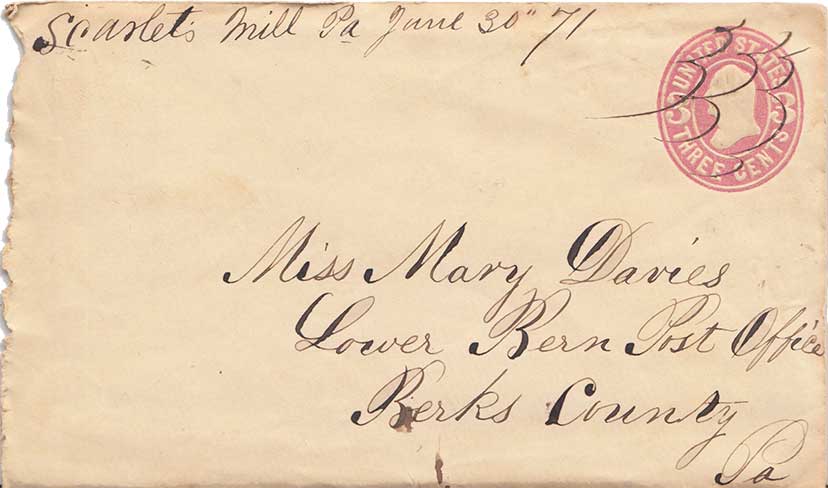 Scarlets Mill Pa June 30" 71
UNITED STATES
3 3
THREE CENTS
Miss Mary Davies
Lower Bern Post Office
Berks County
Pa